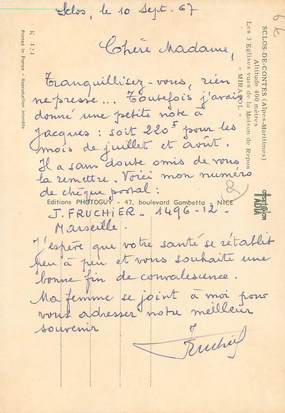 Sclos, le 10 Sept. 67
Chère Madame,
Tranquillisez-vous, rien
ne presse... Toutefois j'avais
donné une petite note à
Jacques : soit 220F pour les
mois de juillet et août.
Il a sans doute omis de vous
la remettre. Voici mon numéro
de chèque postal :
Editions PHOTOGUY - 47, boulevard Gambetta - NICE
J. FRUCHIER - 1496-12-
Marseille.
J'espère que votre santé se rétablit
peu à peu et vous souhaite une
bonne fin de convalescence.
Ma femme se joint à moi pour
vous adresser notre meilleur
souvenir
Fruchier
SCLOS-DE-CONTES (Alpes-Maritimes)
Altitude 400 mètres
Les 3 Eglises vues de la Maison de Repos
« MIRAPOL »
Printed in France - Reproduction interdite